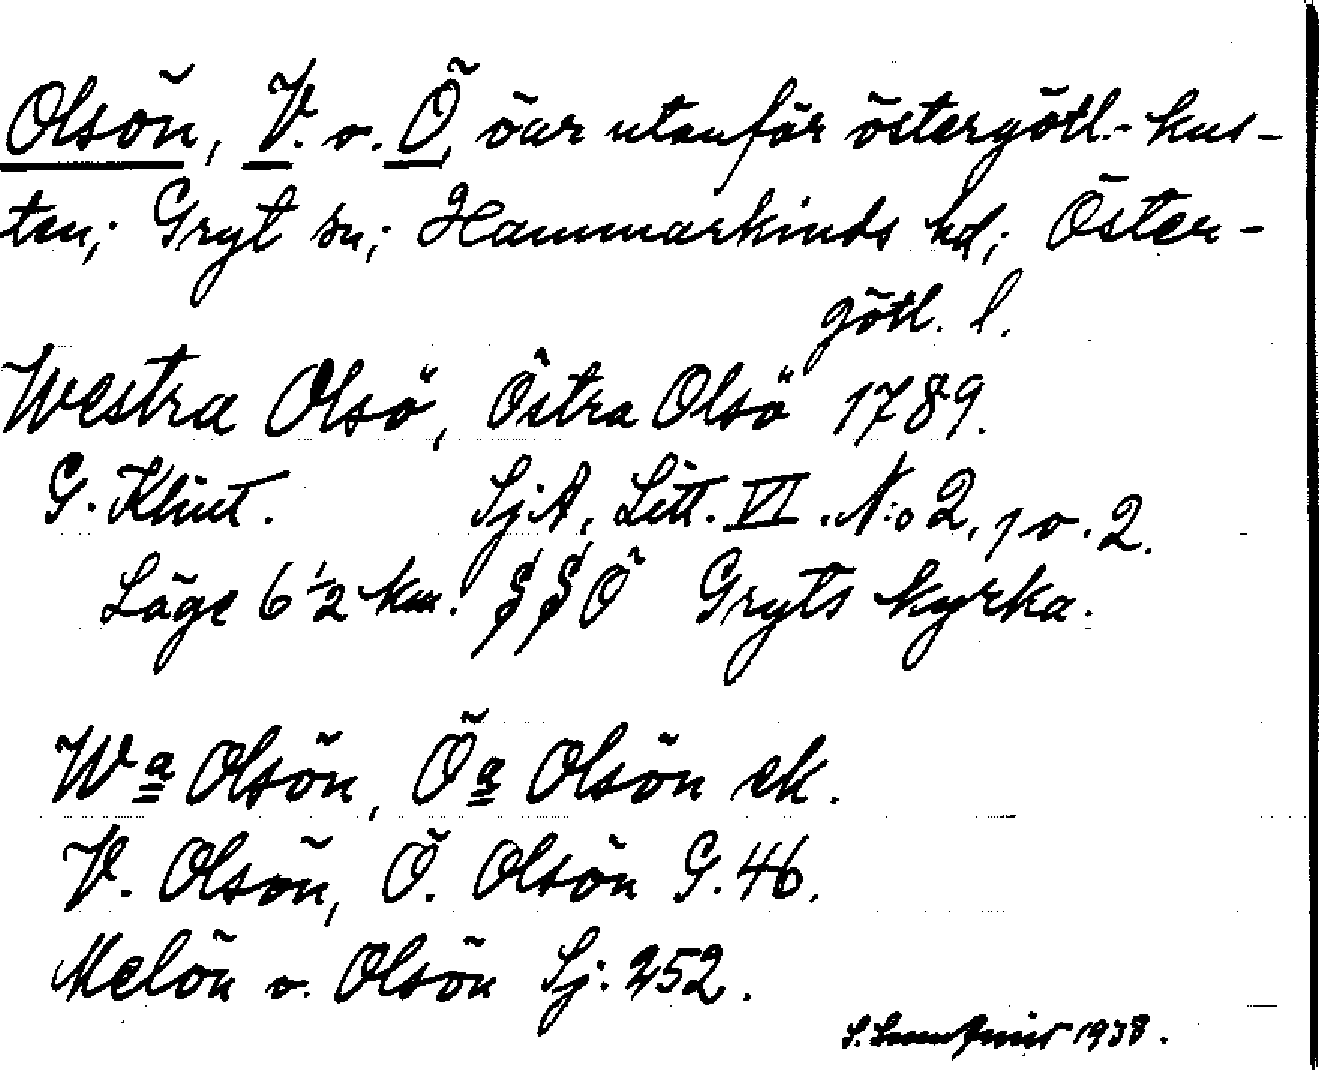 Olsön, V. o. Ö, öar utanför östergötl.-kus-
ten; Gryt sn; Hammarkinds hd; Öster-
götl. l.
Westra Olsö, Östra Olsö 1789.
G. Klint. SjA, Litt. VI. N:o 2, 1 o. 2.
Läge 6 1/2 km. SSÖ Gryts kyrka.
Wa Olsön, Öa Olsön ek.
V. Olsön, Ö. Olsön G. 46.
Melön o. Olsön Sj: 252.
1938.